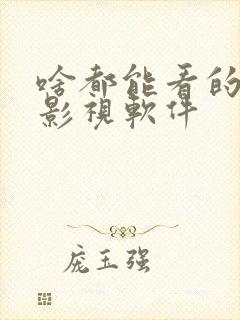 啥都能看的
影視軟件
庞玉强